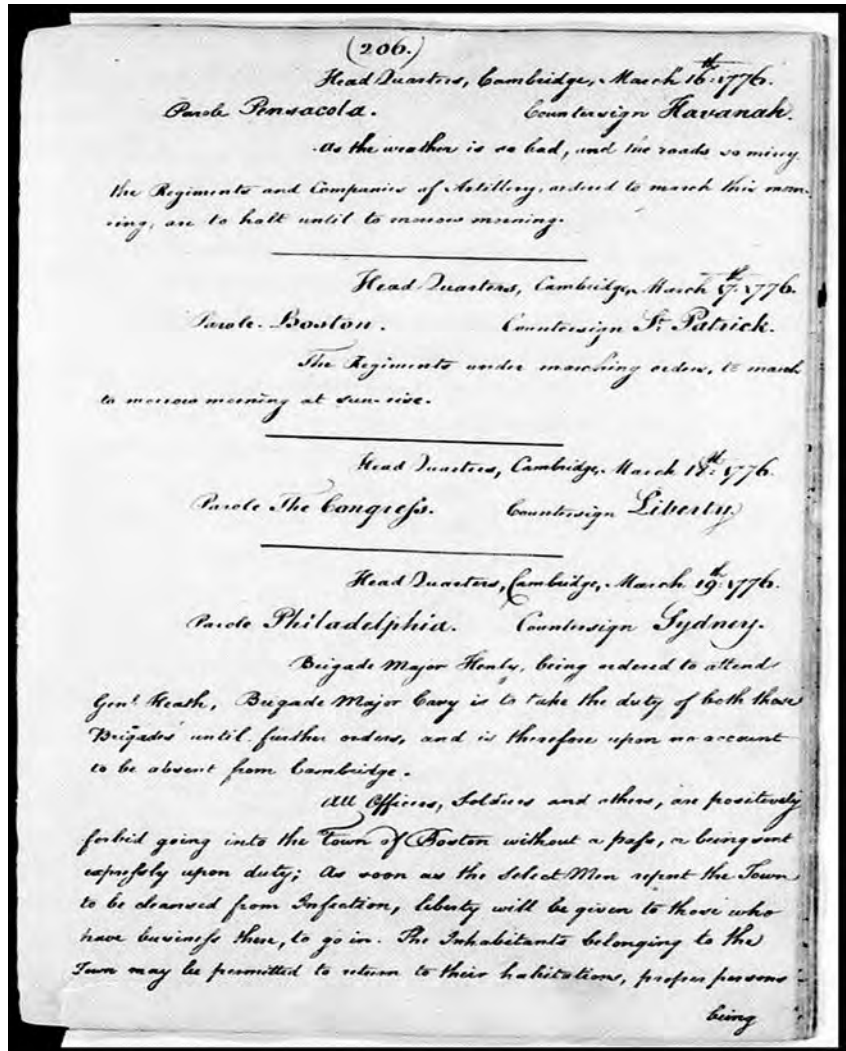 (206.)
Head Quarters, Cambridge, March 16th: 1776.
Parole Pensacola. Countersign Havanah.
As the weather is so bad, and the roads so miery
the Regiments and Companies of Artillery, ordered to march this mor-
ning, are to halt until to morrow morning.
Head Quarters, Cambridge, March 17th: 1776.
Parole. Boston. Countersign St. Patrick.
The Regiments under marching orders, to march
to morrow morning at sun-rise.
Head Quarters, Cambridge, March 18th: 1776.
Parole The Congress. Countersign Liberty.
Head Quarters, Cambridge, March 19th: 1776.
Parole Philadelphia. Countersign Sydney.
Brigade Major Henly, being ordered to attend
Genl. Heath, Brigade Major Cary is to take the duty of both those
Brigades until further orders, and is therefore upon no account
to be absent from Cambridge.
All Officers, Soldiers and others, are positively
forbid going into the Town of Boston without a pass, or being sent
expressly upon duty; As soon as the Select Men report the Town
to be cleansed from Infection, liberty will be given to those who
have business there, to go in. The Inhabitants belonging to the
Town may be permitted to return to their habitations, proper persons
being